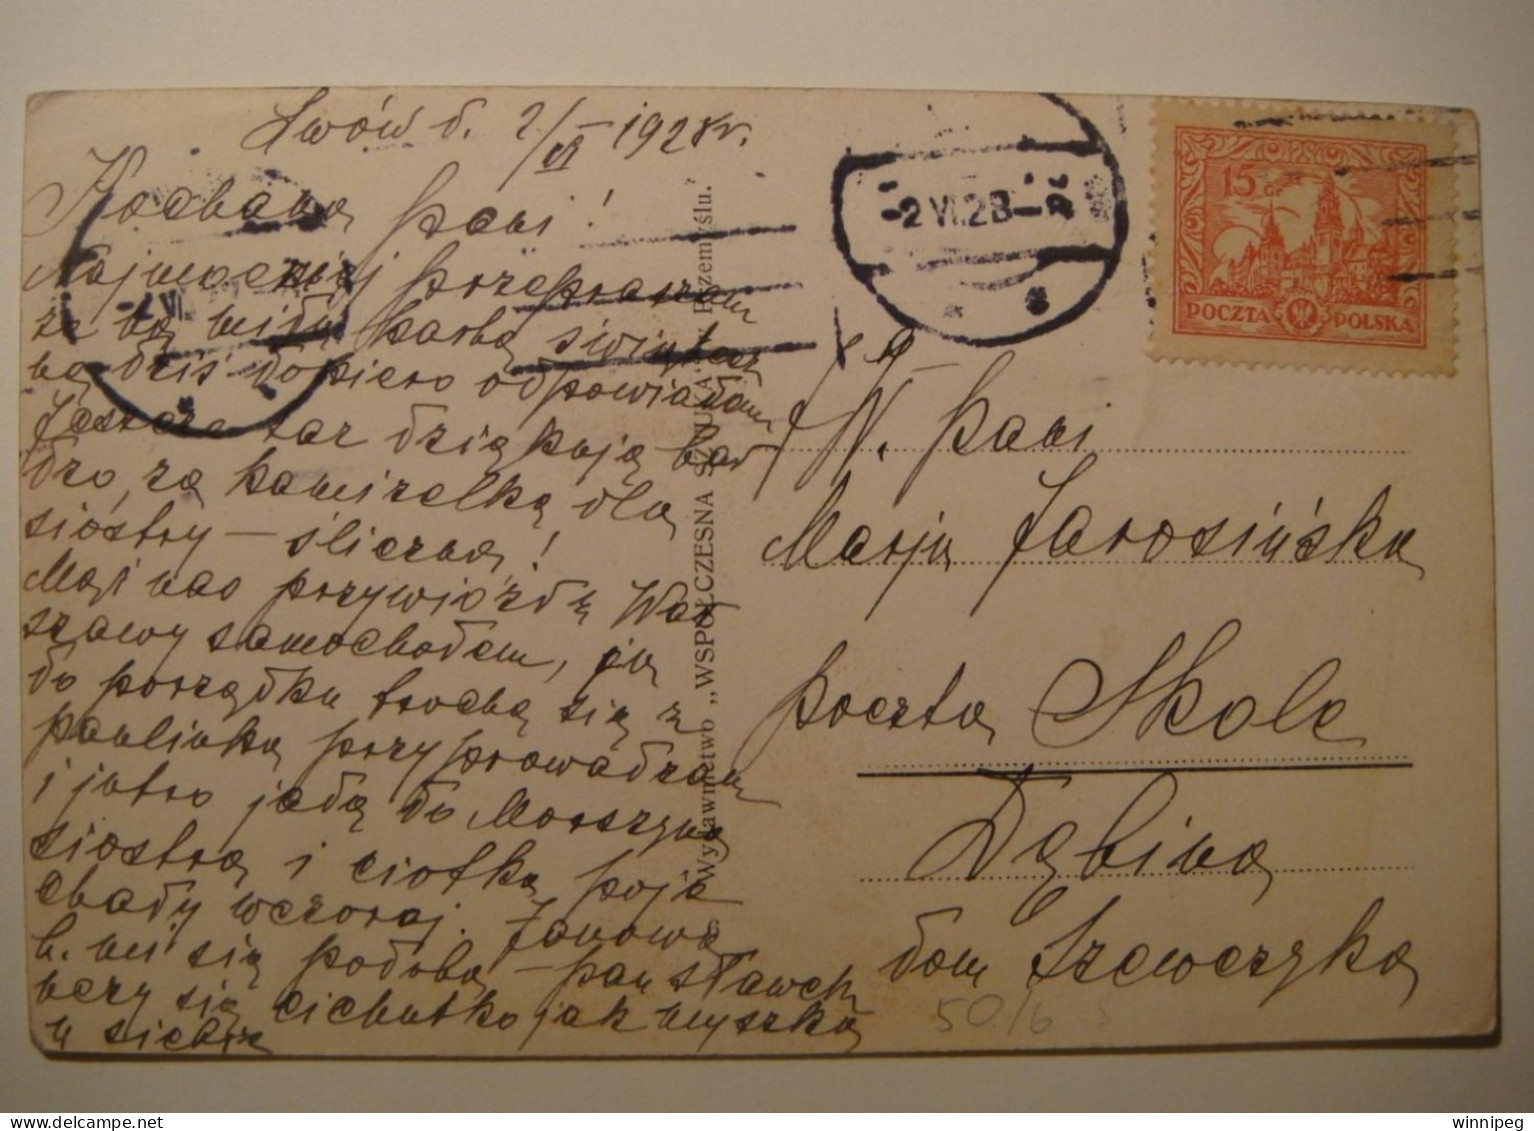 Lwów d. 2/VI 1928 r.
Kochana Pani!
Najmocniej przepraszam
że na miłą kartkę świątecz
ną dziś dopiero odpowiadam
Jeszcze raz dziękuję bar
dzo za kamizelkę dla
siostry – śliczna!
Mąż nas przywiózł z War
szawy samochodem, ja
do porządku trochę się z
Paulinką przyprowadzam
i jutro jadę do Morszyna
siostra i ciotka poje
chały wczoraj. Janowa
b. mi się podoba – pan Sławek
męczy się cichutko jak myszka
u siebie
Wydawnictwo „WSPÓŁCZESNA SZTUKA" w Przemyślu.
-2 VI
-2 VI.28-
15 GR
POCZTA POLSKA
W. Pani
Marja Jarosińska
poczta Skole
Dębina
dom Szewczyka
50/6
winnipeg